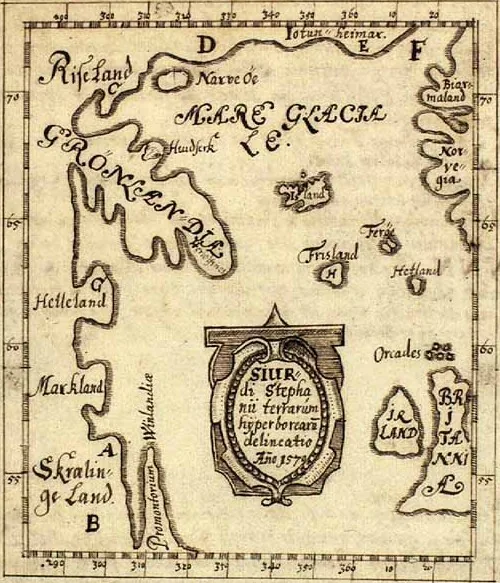 310 320 330 340 350 360 10 20
D
Iotun-heimar.
E
F
Riseland
C
Narve Oe
Biar-
maland
70
70
MARE GLACIA
LE.
Huidserk
GRONLANDIA
Nor-
vegia
Island
65
65
Ferge
Frisland
H
Hetland
G
Helleland
60
60
Orcades
SIUR-
di Stepha
nii terrarum
hyperborearū
delineatio
Año 1570
Markland
IR
LAND
BRI
TANNI
Æ
A
Skralin-
ge Land.
Promontorium Winlandiæ
55
55
B
290 300 310 320 330 340 350 360 10 20